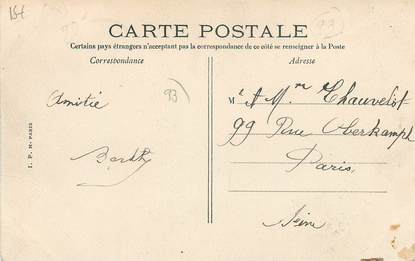 15f
CARTE POSTALE
93
Certains pays étrangers n'acceptant pas la correspondance de ce côté se renseigner à la Poste
Correspondance
Adresse
Amitié
93
Mr & Mme Chauvelot
99 Rue Oberkampf
Paris
Seine
I. P. M. PARIS